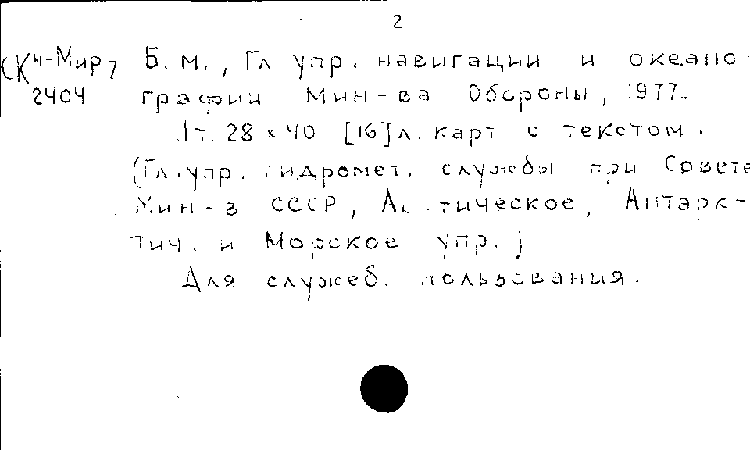 2
СК Ч-Мир7 Б. м., Гл упр. навигации и океано-
2404 графии Мин-ва Обороны, 1977.
1т. 28 × 40 [16]л. карт с текстом.
(Гл. упр. гидромет. службы при Совете
Мин-в СССР, Арктическое, Антарк-
тич. и Морское упр.)
Для служеб. пользования.